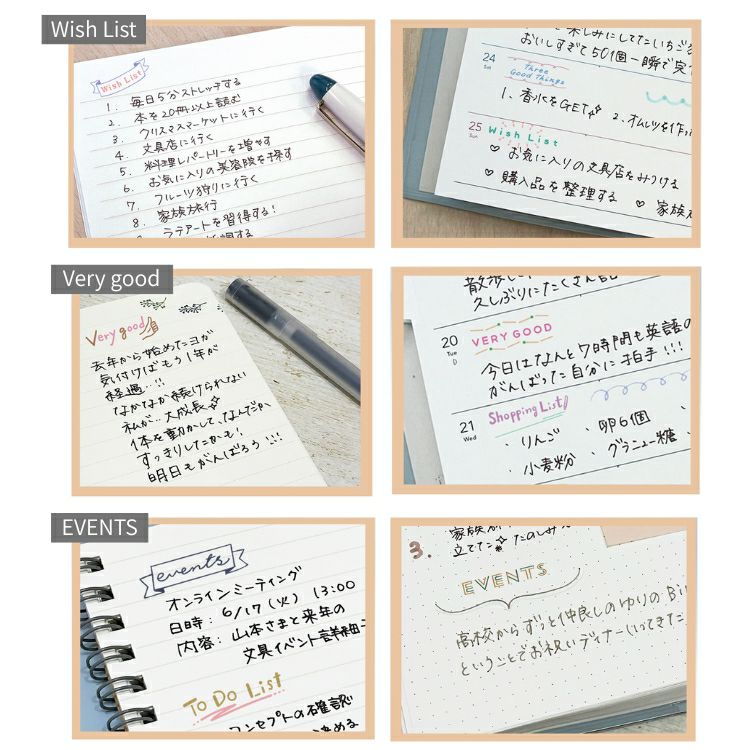 Wish List
Wish List
1. 毎日5分ストレッチする
2. 本を20冊以上読む
3. クリスマスマーケットに行く
4. 文具店に行く
5. 料理レパートリーを増やす
6. お気に入りの美容院を探す
7. フルーツ狩りに行く
8. 家族旅行
9. ラテアートを習得する!
楽しみにしてたいちご
おいしすぎて50個一瞬で
24
Sat
Three
Good Things
1. 香水をGET
2. オムレツを作
25
Sun
Wish List
♡ お気に入りの文具店をみつける
♡ 購入品を整理する ♡ 家族
Very good
Very good
去年から始めたヨガ
気付けばもう1年が
経過…!!
なかなか続けられない
私が…大成長
体を動かして、なんだか
すっきりしたかも!
明日もがんばろう!!!
散歩し
久しぶりにたくさん
20
Tue
VERY GOOD
今日はなんと7時間も英語の
がんばった自分に拍手!!!
21
Wed
Shopping List
・りんご ・卵6個
・小麦粉 ・グラニュー糖
EVENTS
events
オンラインミーティング
日時: 6/17(火) 13:00
内容: 山本さまと来年の
文具イベント詳細
To Do List
コンセプトの確認
決める
家族
3. 立てた たのしみ
EVENTS
高校からずっと仲良しのゆりの Bi
ということでお祝いディナー行ってきた